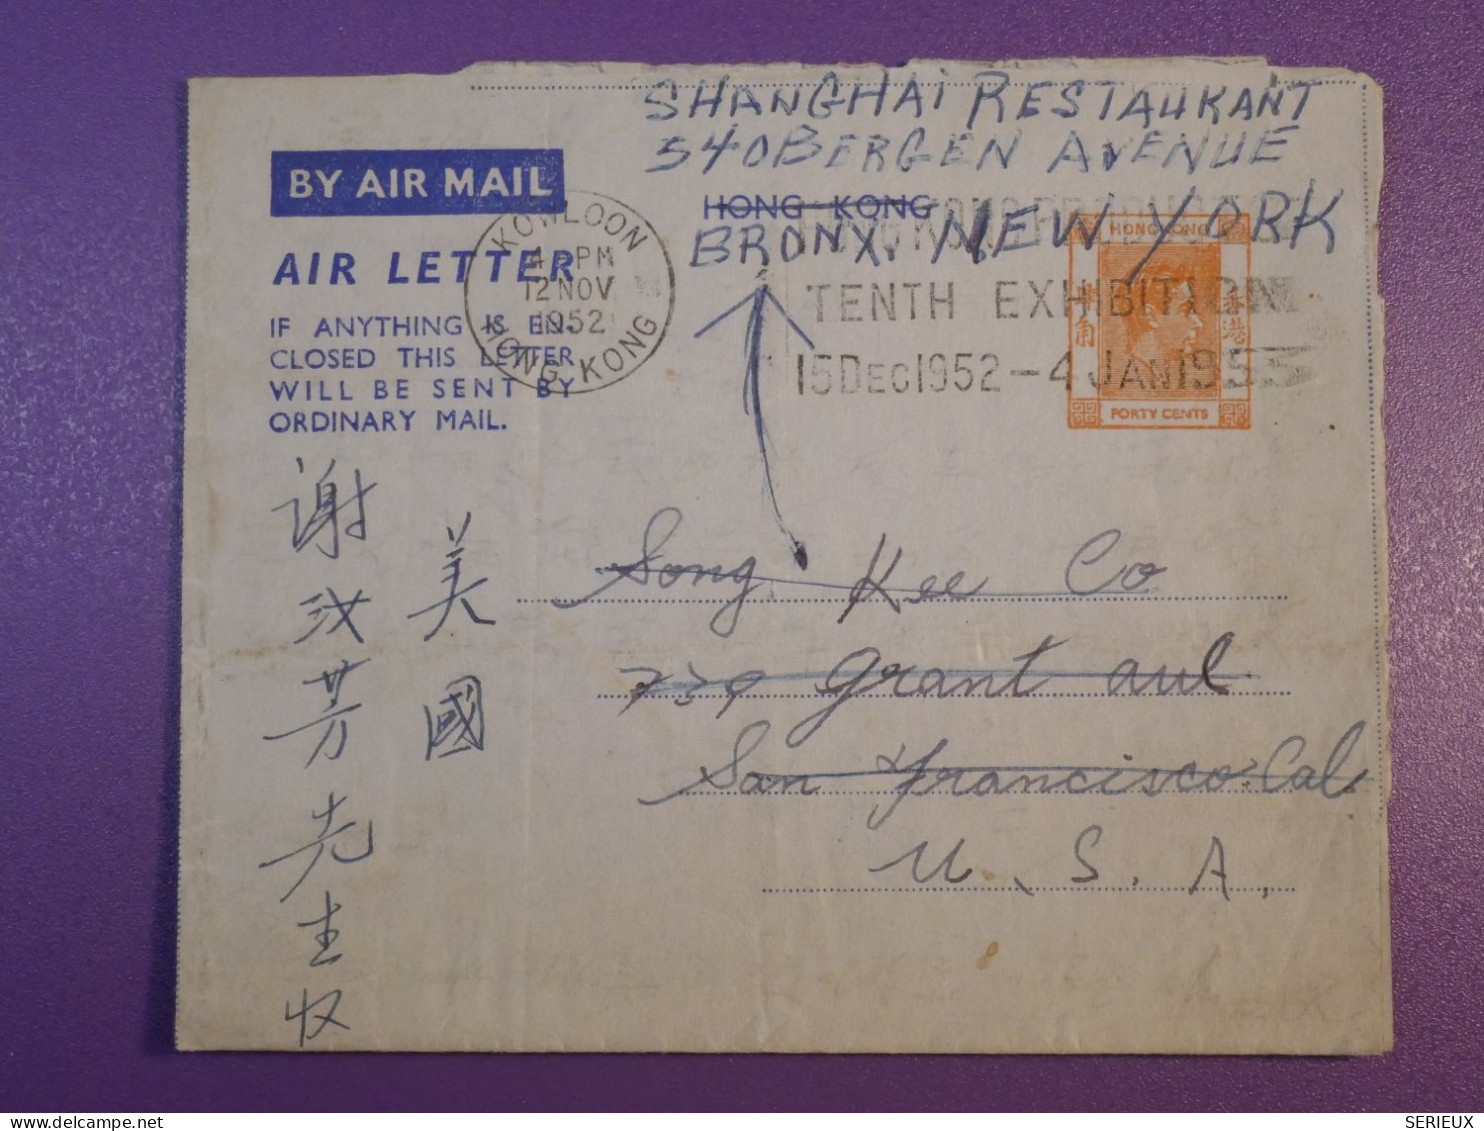 SHANGHAI RESTAURANT
540 BERGEN AVENUE
BRONX, NEW YORK
BY AIR MAIL
HONG KONG
AIR LETTER
IF ANYTHING IS EN-
CLOSED THIS LETTER
WILL BE SENT BY
ORDINARY MAIL.
KOWLOON
4 PM
12 NOV
1952
HONG KONG
TENTH EXHIBITION
15 DEC 1952 - 4 JAN 1953
HONG KONG
香港
角
FORTY CENTS
Song Kee Co
739 Grant aul
San Francisco. Cal
U. S. A.
美國
謝汝芳先生收
SERIEUX
www.delcampe.net